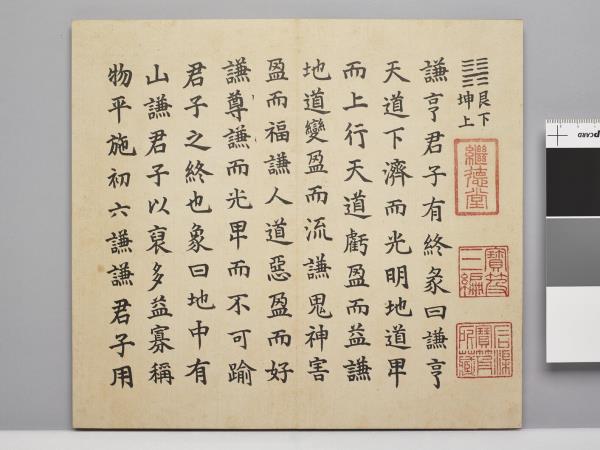 ䷎
艮下
坤上
繼德堂
寶笈三編
石渠寶笈所藏
謙亨君子有終彖曰謙亨
天道下濟而光明地道卑
而上行天道虧盈而益謙
地道變盈而流謙鬼神害
盈而福謙人道惡盈而好
謙尊謙而光卑而不可踰
君子之終也象曰地中有
山謙君子以裒多益寡稱
物平施初六謙謙君子用